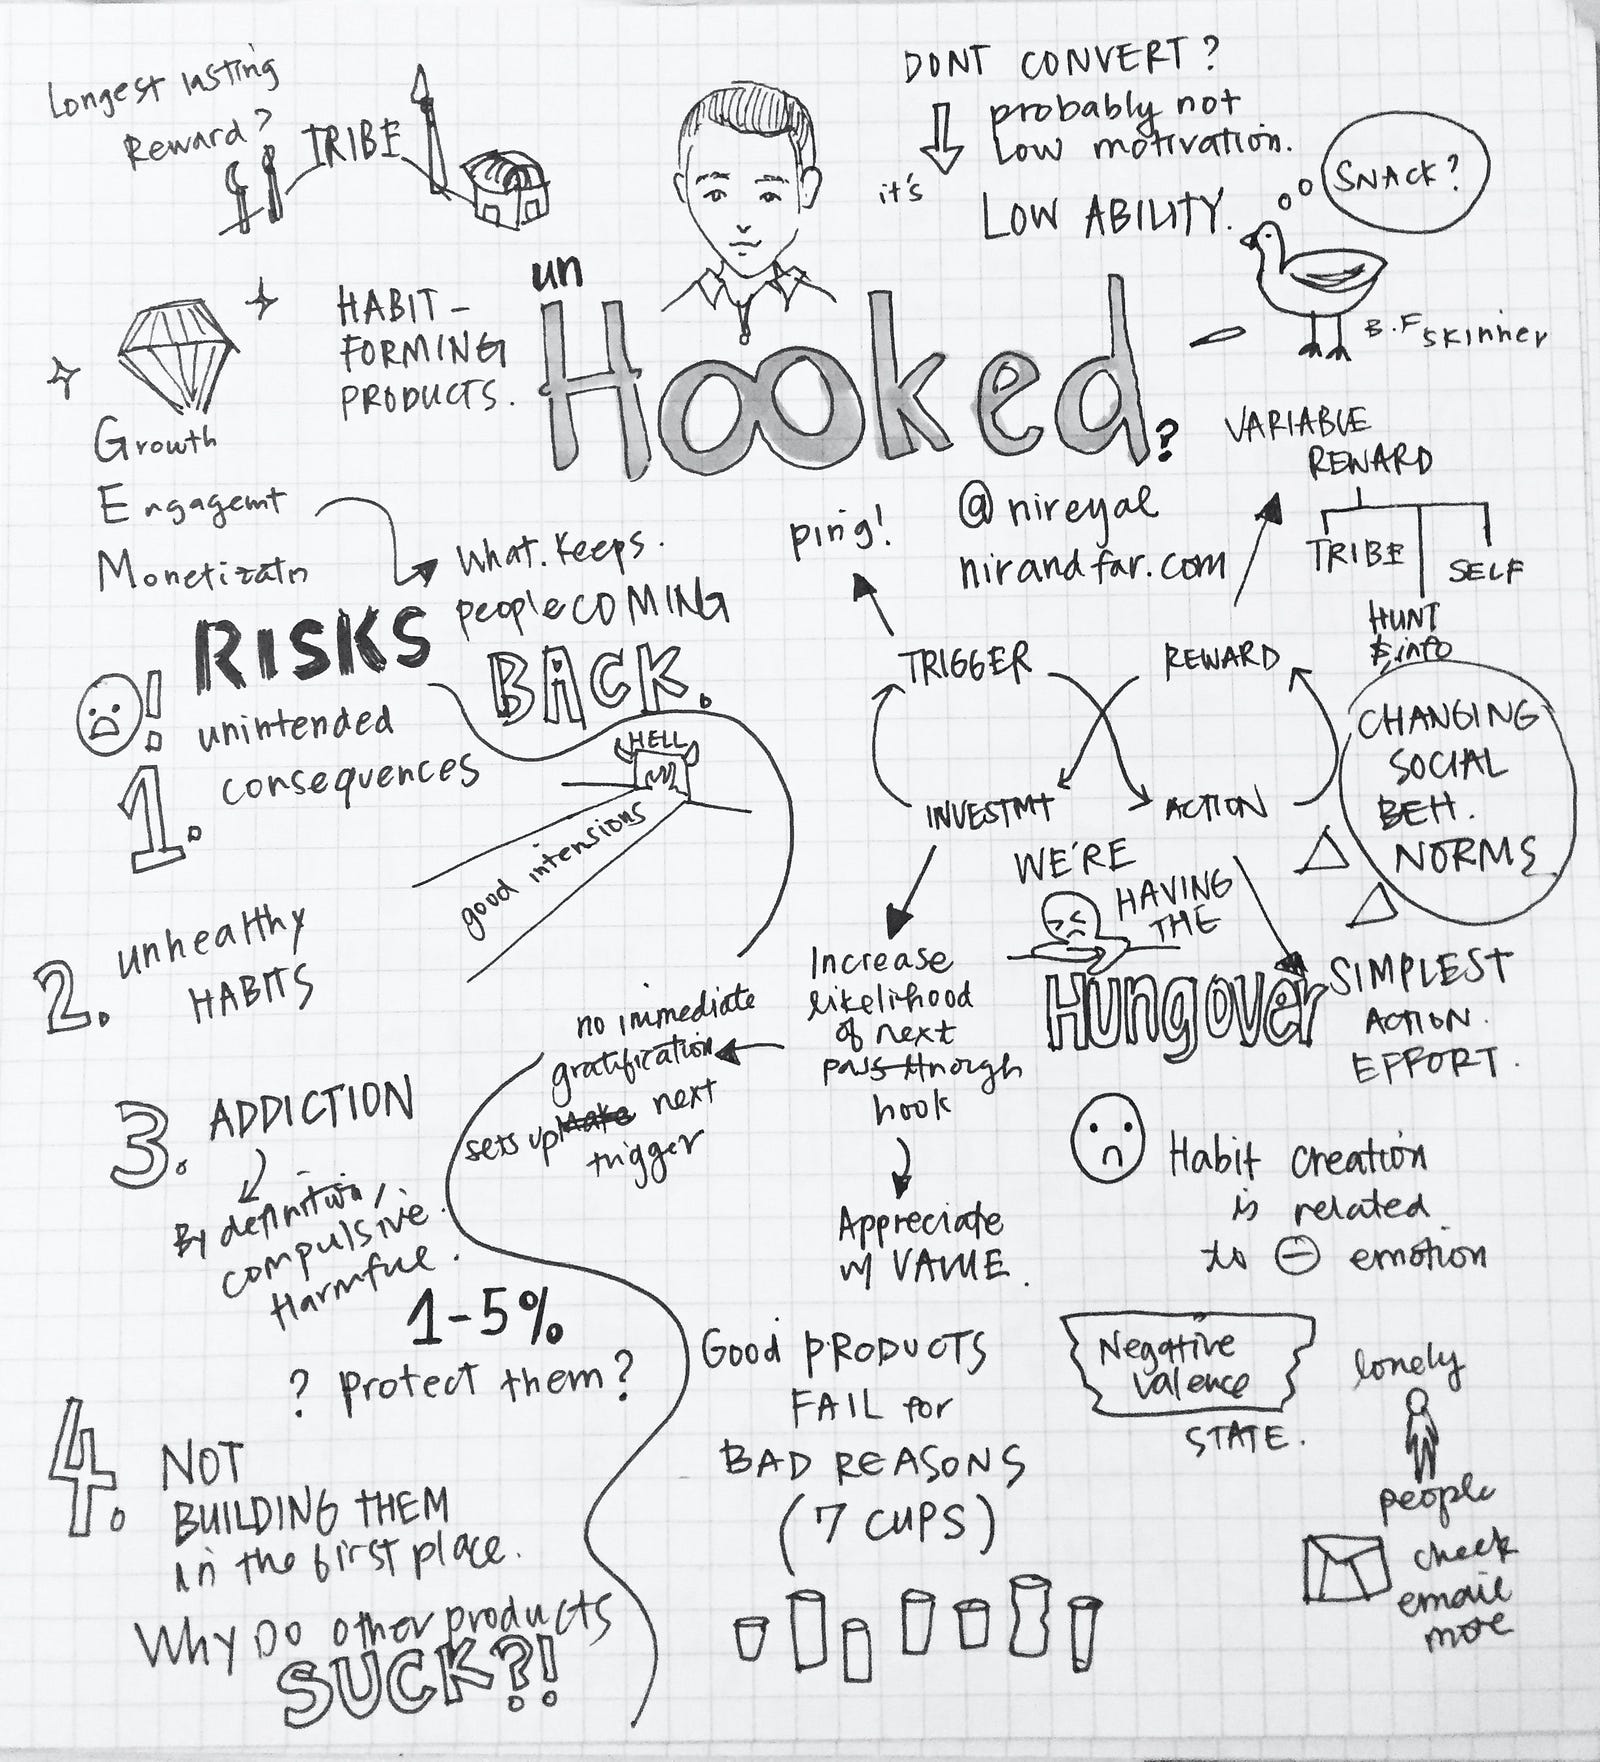 Longest lasting
Reward?
TRIBE
DONT CONVERT?
probably not
low motivation.
it's
LOW ABILITY.
SNACK?
B.F Skinner
HABIT-
FORMING
PRODUCTS.
un
Hooked?
@nireyal
nirandfar.com
Growth
Engagemt
Monetizatn
What keeps.
people COMING
BACK.
ping!
VARIABLE
REWARD
TRIBE
SELF
HUNT
& info
TRIGGER
REWARD
INVESTMT
ACTION
CHANGING
SOCIAL
BEH.
NORMS
WE'RE
HAVING
THE
Hungover
SIMPLEST
ACTION.
EFFORT.
RISKS
!
1. unintended
consequences
HELL
good intensions
2. unhealthy
HABITS
3. ADDICTION
By definition,
compulsive.
Harmful.
1-5%
? protect them?
4. NOT
BUILDING THEM
in the first place.
Why DO other products
SUCK?!
Increase
likelihood
of next
pass through
hook
no immediate
gratification
sets up Make next
trigger
Appreciate
w/ VALUE.
Habit creation
is related
to ⊖ emotion
Good PRODUCTS
FAIL for
BAD REASONS
(7 CUPS)
Negative
Valence
STATE.
lonely
people
check
email
more